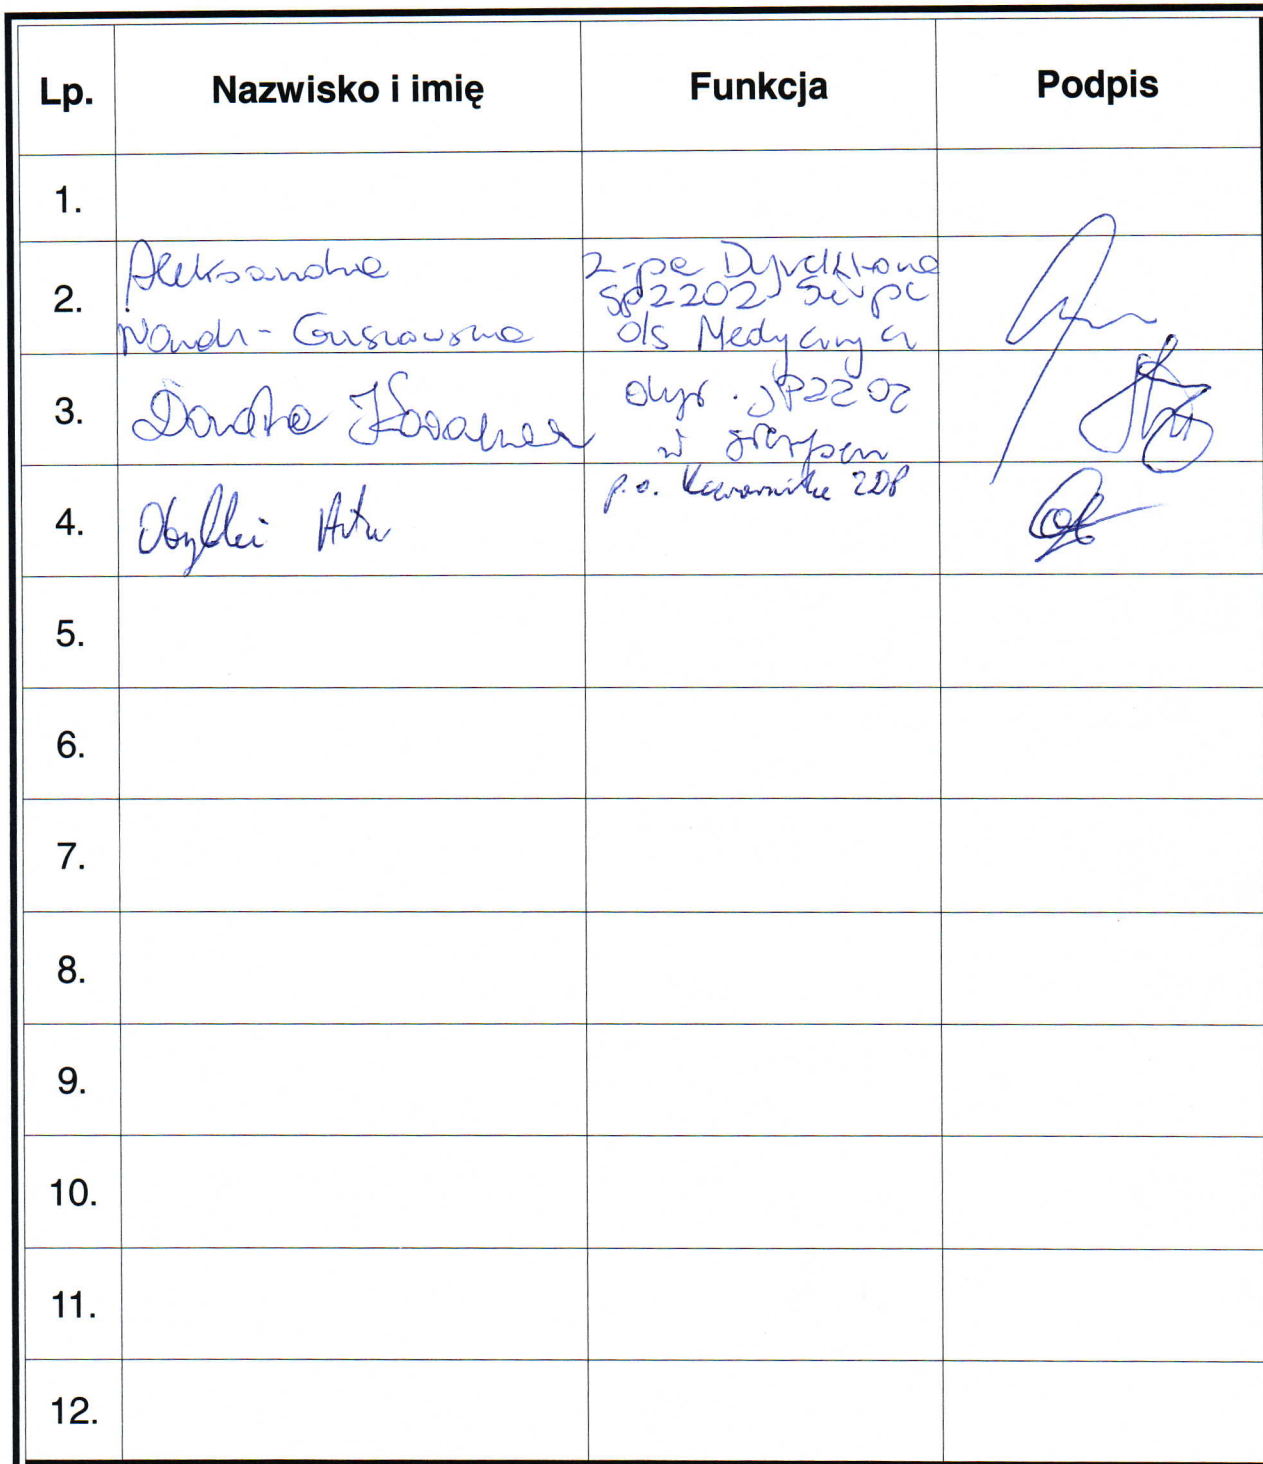 Lp. Nazwisko i imię Funkcja Podpis
1.
2. Aleksandra Z-ca Dyrektora
SPZZOZ Sierpc
d/s Medycznych
3. Dorota dyr. SPZZOZ
w Sierpcu
4. Artur p.o. Kierownika ZDP
5.
6.
7.
8.
9.
10.
11.
12.